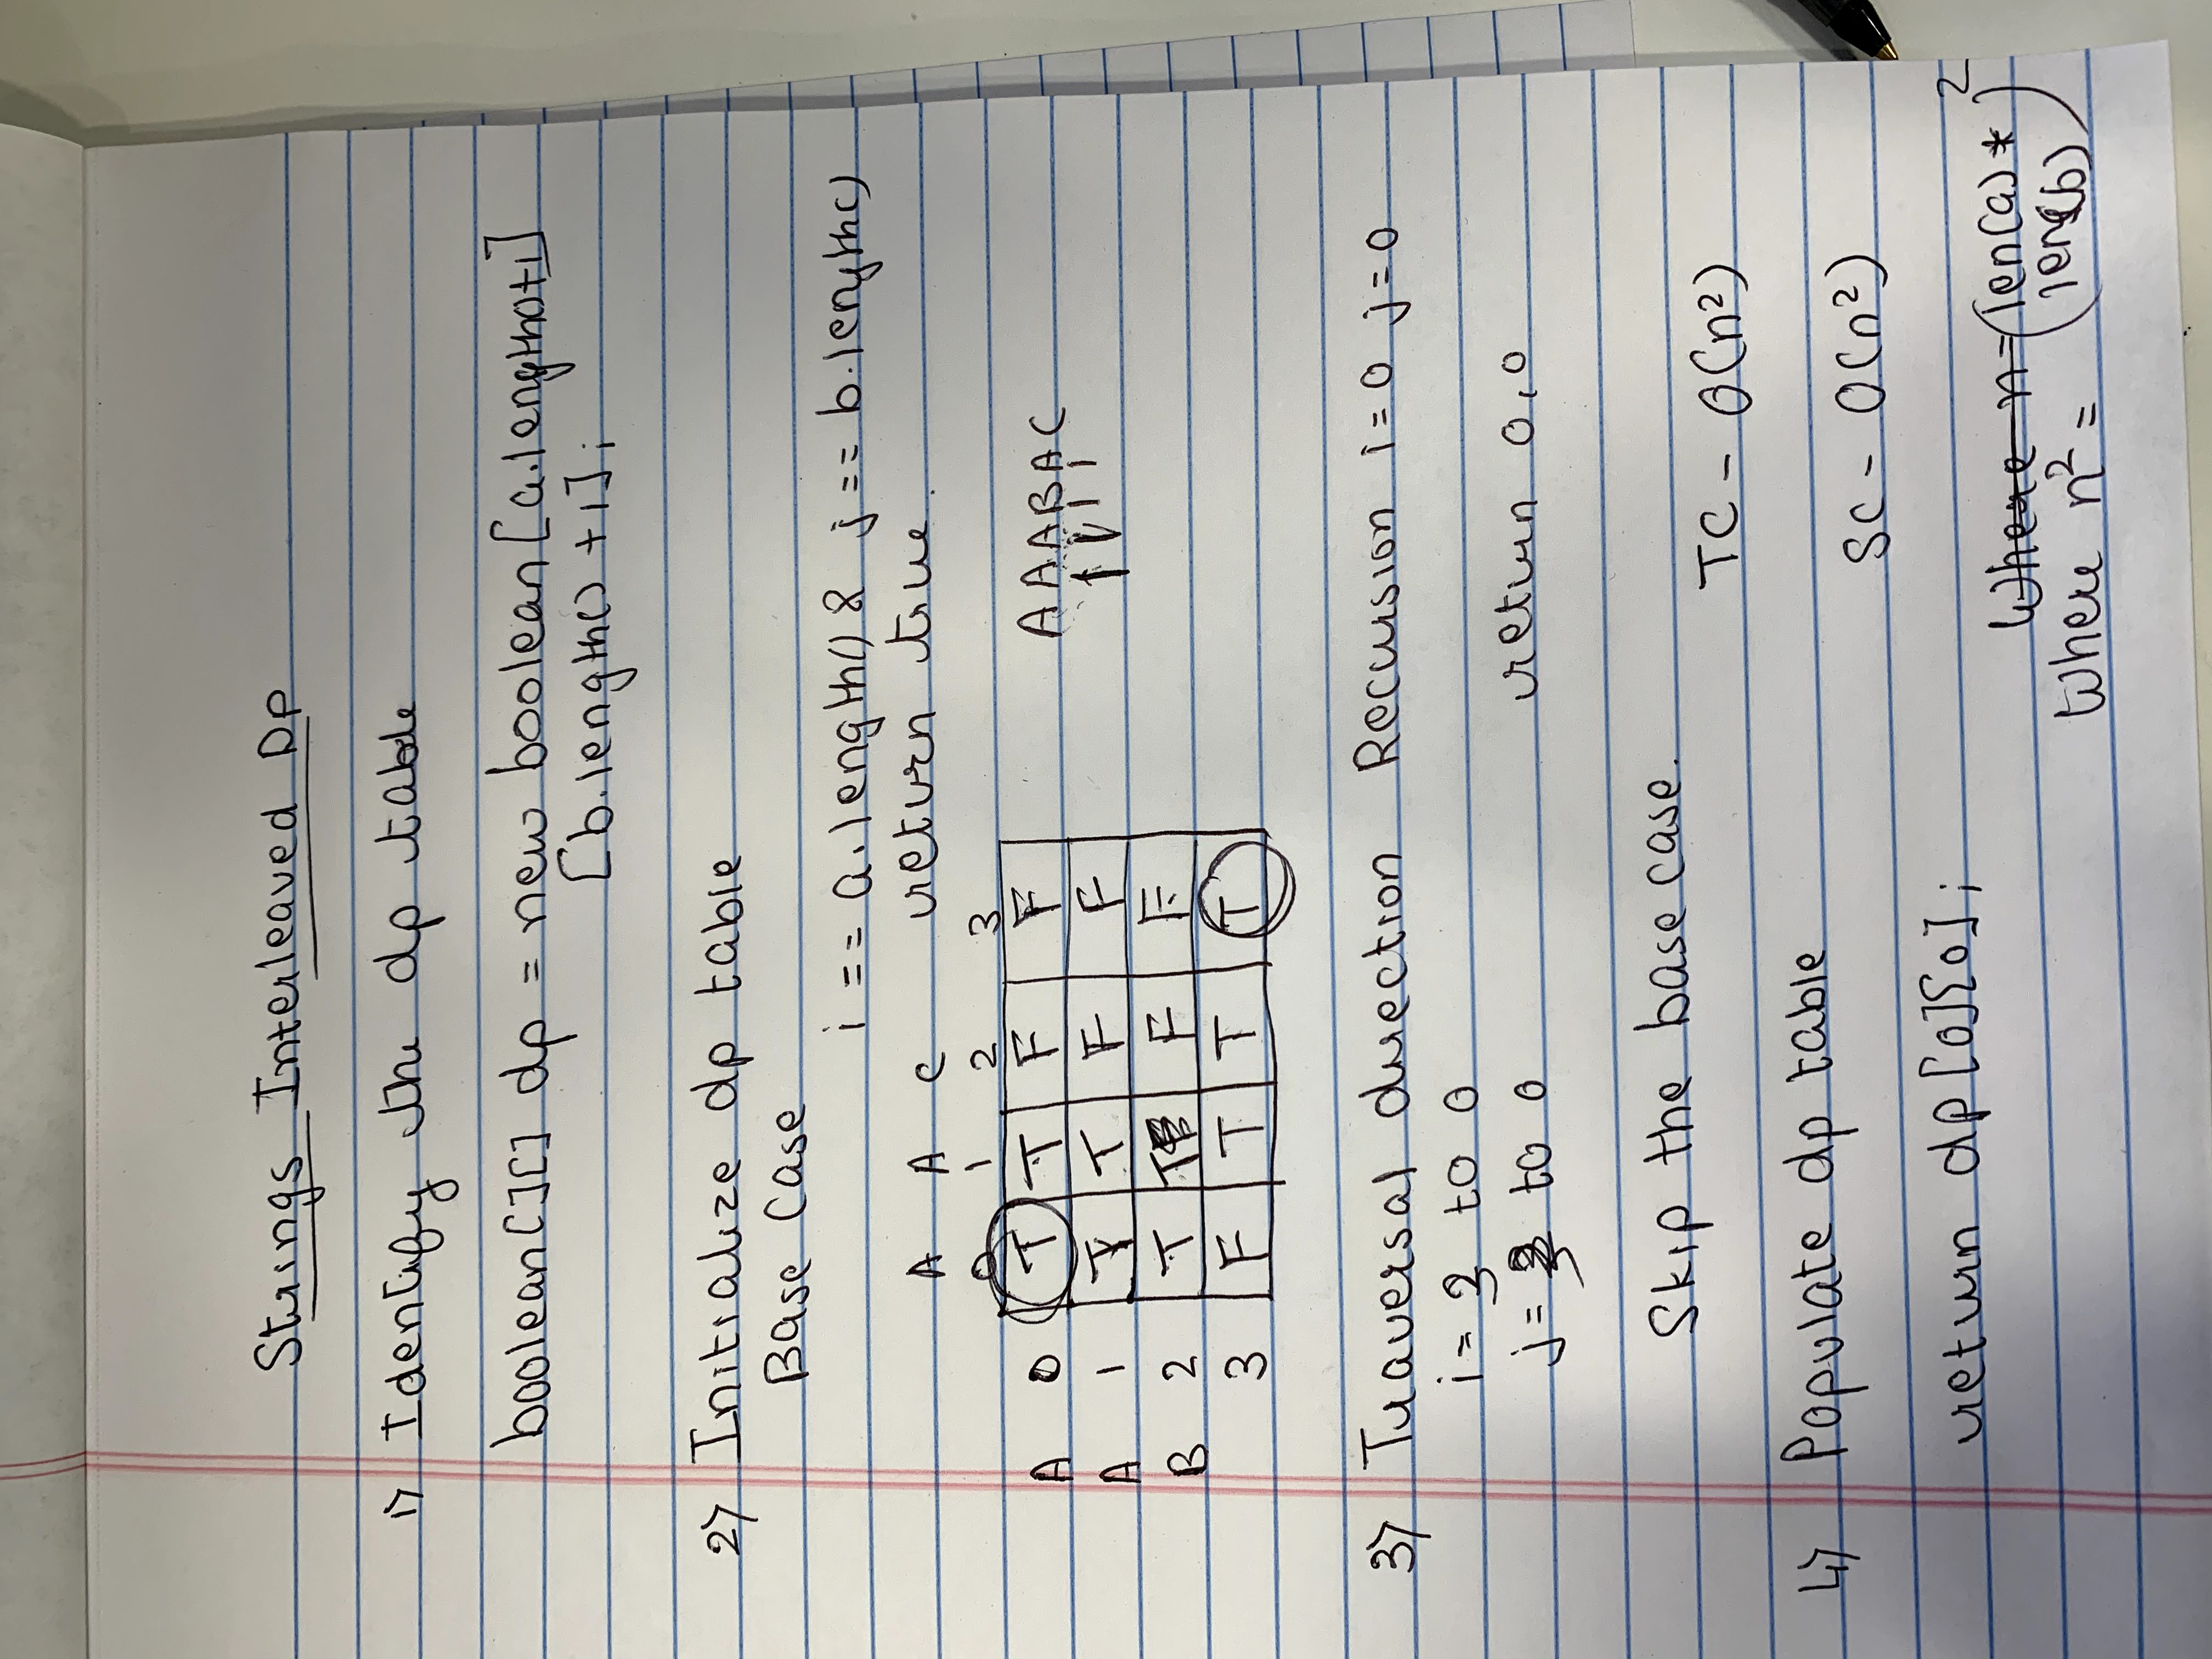 Strings Interleaved Dp
1) Identify the dp table
boolean[][] dp = new boolean[a.length()+1]
[b.length() +1];
2) Initialize dp table
Base Case
i == a.length() & j == b.length()
return true.
A A C
0 1 2 3
A 0 T T F F
A 1 T T F F
B 2 T T F F
3 F T T T
AAABAC
3) Traversal direction Recursion i=0 j=0
i = 3 to 0
j = 3 to 0
return 0,0
Skip the base case.
TC - O(n²)
4) Populate dp table
SC - O(n²)
return dp[0][0];
Where n = (len(a) *
Where n² = len(b))²